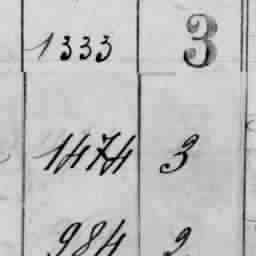 1333 3
1474 3
984 2